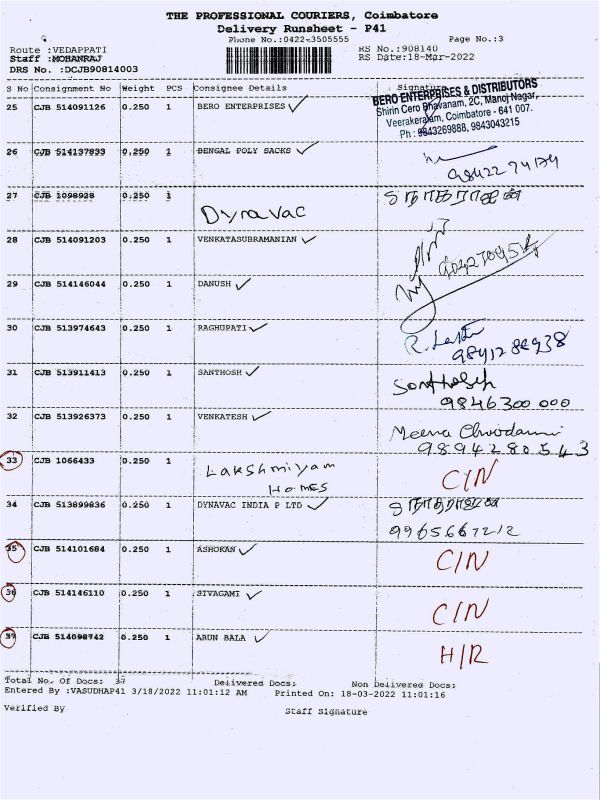 THE PROFESSIONAL COURIERS, Coimbatore
Delivery Runsheet - P41
Phone No.:0422-3505555 Page No.:3
Route :VEDAPPATI RS No.:908140
Staff :MOHANRAJ RS Date:18-Mar-2022
DRS No. :DCJB90814003
S No Consignment No Weight PCS Consignee Details Signature
25 CJB 514091126 0.250 1 BERO ENTERPRISES
BERO ENTERPRISES & DISTRIBUTORS
Shirin Cero Bhavanam, 2C, Manoj Nagar,
Veerakeralam, Coimbatore - 641 007.
Ph : 9843269888, 9843043215
26 CJB 514137833 0.250 1 BENGAL POLY SACKS
27 CJB 1098928 0.250 1 Dynavac
28 CJB 514091203 0.250 1 VENKATASUBRAMANIAN
29 CJB 514146044 0.250 1 DANUSH
30 CJB 513974643 0.250 1 RAGHUPATI
31 CJB 513911413 0.250 1 SANTHOSH Santhosh
9846300000
32 CJB 513926373 0.250 1 VENKATESH Meena
9894280543
33 CJB 1066433 0.250 1 Lakshmiyam
HOMES C/N
34 CJB 513899836 0.250 1 DYNAVAC INDIA P LTD
35 CJB 514101684 0.250 1 ASHOKAN C/N
36 CJB 514146110 0.250 1 SIVAGAMI C/N
37 CJB 514098742 0.250 1 ARUN BALA H/R
Total No. Of Docs: 37 Delivered Docs: Non Delivered Docs:
Entered By :VASUDHAP41 3/18/2022 11:01:12 AM Printed On: 18-03-2022 11:01:16
Verified By Staff Signature